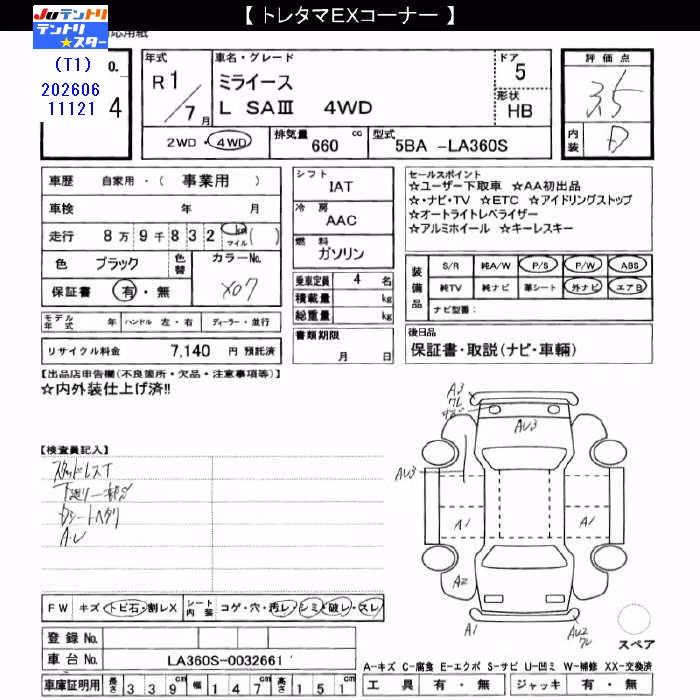 【 トレタマEXコーナー 】
Juテントリ
テントリ
☆スター
応用紙
(T1)
202606
11121
0.
4
年式
R 1/7月
車名・グレード
ミライース
L SAⅢ 4WD
ドア
5
形状
HB
評価点
3.5
内装
D
2WD・4WD
排気量 660 cc
型式 5BA -LA360S
車歴 自家用・( 事業用 )
車検 年 月
走行 8万9千832 km マイル ( )
色 ブラック
色替
カラーNo.
X07
保証書 有・無
シフト
IAT
冷房
AAC
燃料
ガソリン
乗車定員 4 名
積載量 kg
総重量 kg
書類期限
月 日
セールスポイント
☆ユーザー下取車 ☆AA初出品
☆・ナビ・TV ☆ETC ☆アイドリングストップ
☆オートライトレベライザー
☆アルミホイール ☆キーレスキー
装備品
S/R 純A/W P/S P/W ABS
純TV 純ナビ 革シート 外ナビ エアB
ナビ型番:
モデル年式 年 ハンドル 左・右 ディーラー・並行
リサイクル料金 7,140 円 預託済
後日品
保証書・取説(ナビ・車輌)
【出品店申告欄(不良箇所・欠品・注意事項等)】
☆内外装仕上げ済!!
【検査員記入】
スタッドレスT
下廻り一部サビ
Dシートヘタリ
A・U
A3
ワレ
AU3
AU3
A1
A1
A2
A1
AU2
ワレ
スペア
FW キズ トビ石・割レX
シート内装 コゲ・穴・汚レ・シミ・破レ・スレ
登録No.
車台No. LA360S-0032661
車庫証明用 長さ 339cm 幅 147cm 高さ 151cm
A-キズ C-腐食 E-エクボ S-サビ U-凹ミ W-補修 XX-交換済
工具 有・無 ジャッキ 有・無